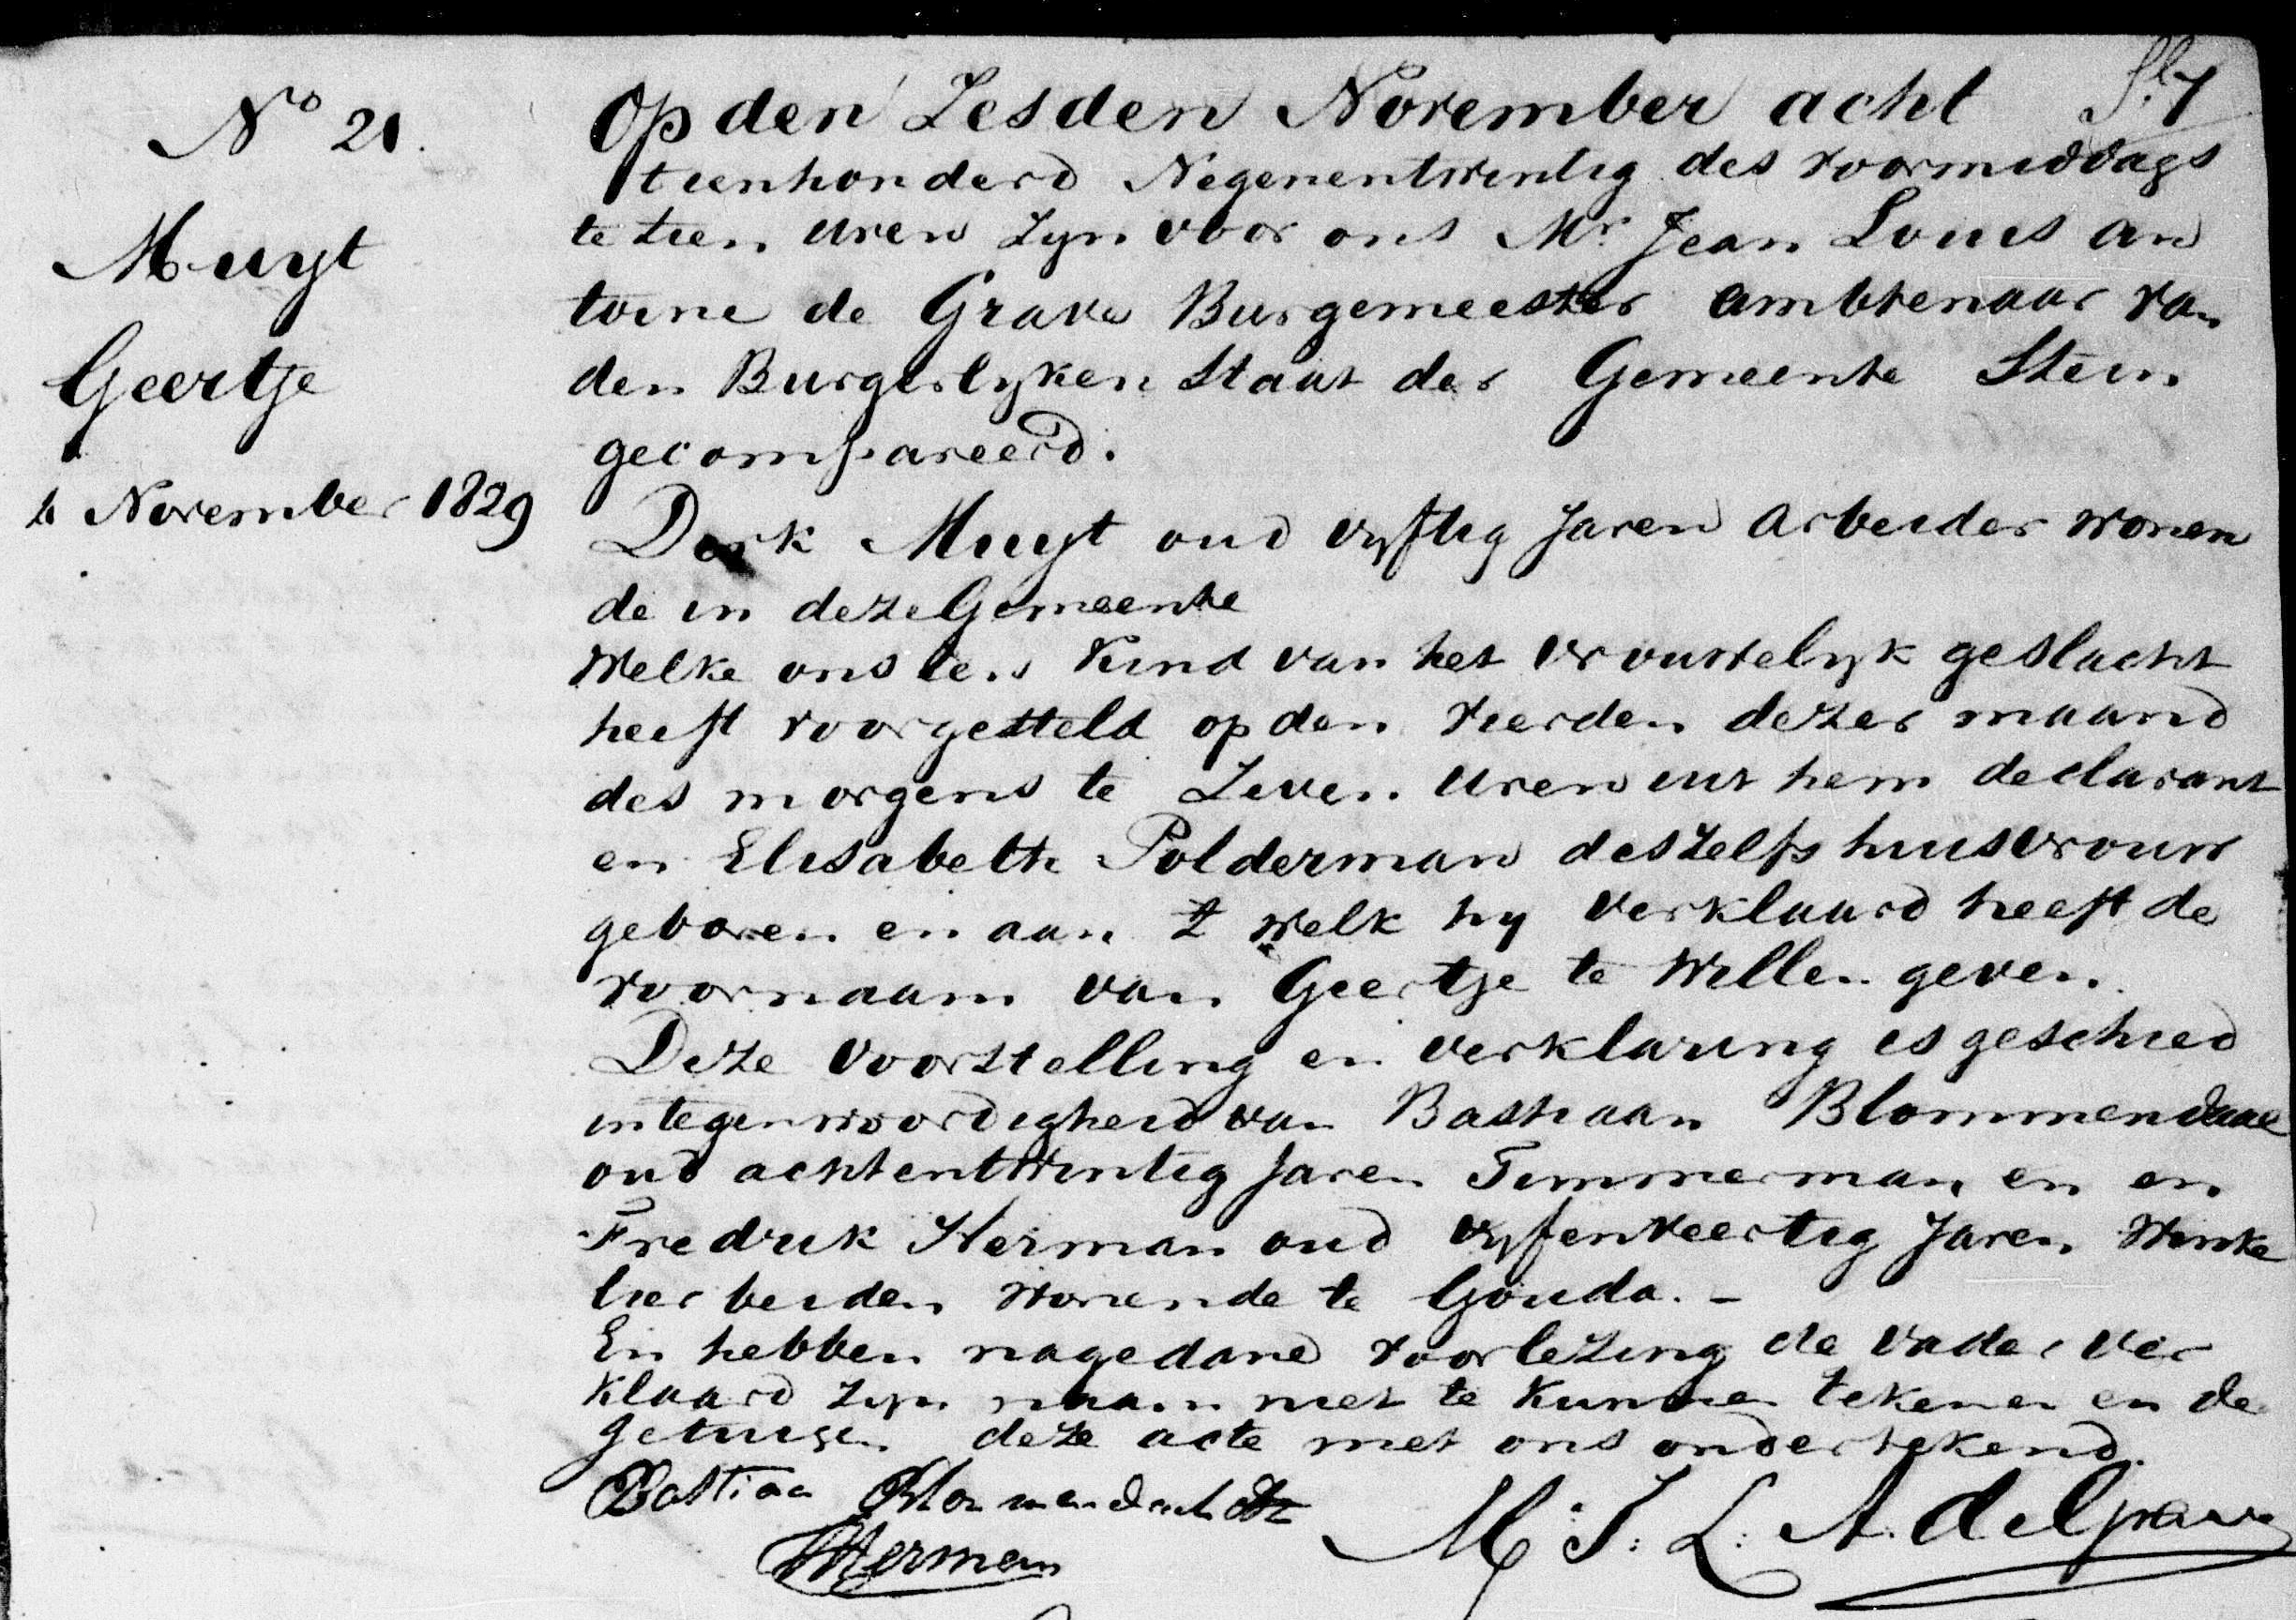 No 21.
Muyt
Geertje
4 November 1829
Op den Zesden November acht
tienhonderd Negenentwintig des voormiddags
te tien uren zyn voor ons Mr. Jean Louis an
toine de Grave Burgemeester ambtenaar van
den Burgerlyken Staat der Gemeente Stein
gecompareerd.
Dirk Muyt oud vyftig Jaren Arbeider wonen
de in deze Gemeente
Welke ons een Kind van het vrouwelyk geslacht
heeft voorgesteld op den vierden dezer maand
des morgens te Zeven uren uit hem declarant
en Elisabeth Polderman deszelfs huisvrouw
geboren en aan t welk hy verklaard heeft de
voornaam van Geertje te Willen geven.
Deze voorstelling en verklaring is geschied
in tegenwoordigheid van Bastiaan Blommendaal
oud achtentwintig Jaren Timmerman en en
Fredrik Herman oud vyfenveertig Jaren Winke
lier beiden wonende te Gouda. -
En hebben nagedane voorlezing de vader ver
klaard zyn naam niet te kunnen tekenen en de
getuigen deze acte met ons ondertekend.
Bastiaa Blommendaal
Herman
Mr. J. L. A. de Grave